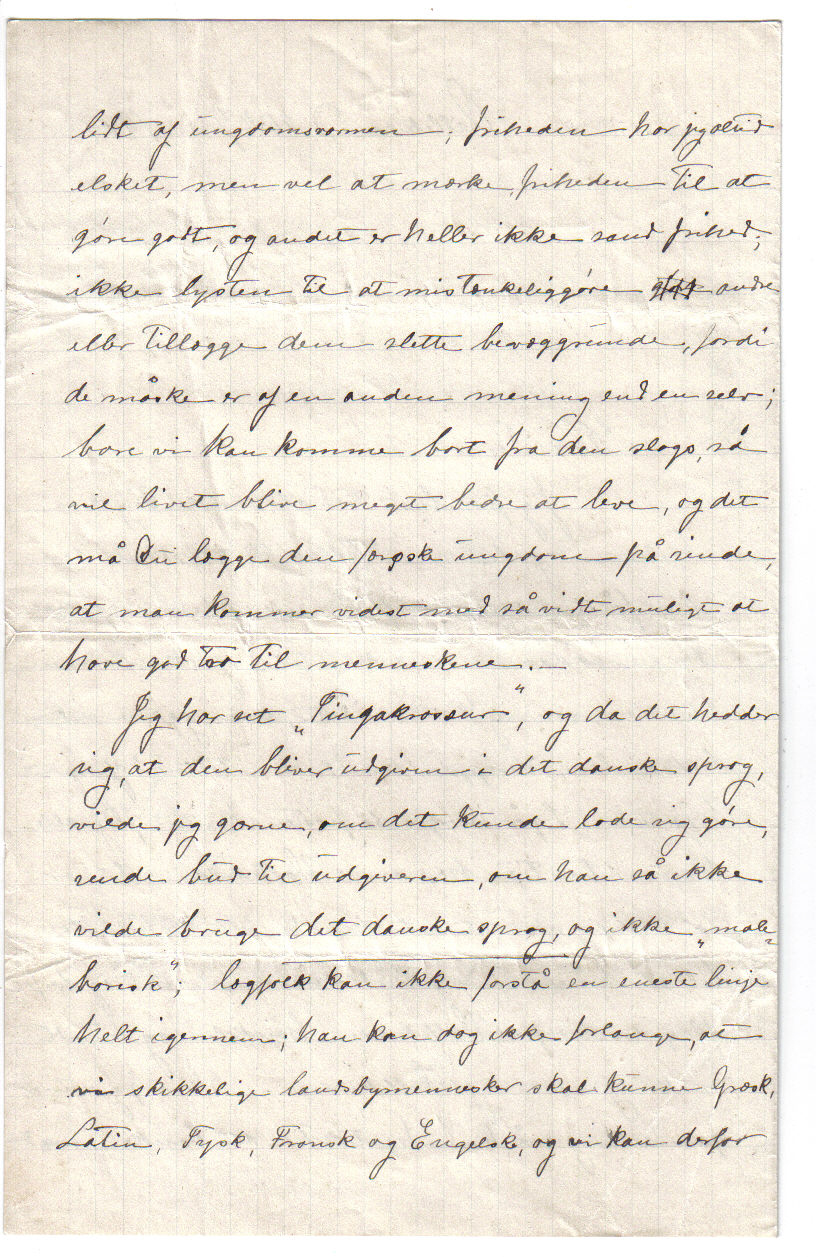 lidt af ungdomsvarmen; friheden har jeg altid
elsket, men vel at mærke friheden til at
góre godt, og andet er heller ikke sand frihed;
ikke lysten til at mistænkeliggóre andre
eller tillægge dem slette bevæggrunde, fordi
de måske er af en anden mening end en selv;
bare vi kan komme bort fra den slags, så
vil livet blive meget bedre at leve, og det
må Du lægge den færøske ungdom på sinde,
at man kommer videst med så vidt muligt at
have god tro til menneskene. —
Jeg har set „Tingakrossur“, og da det hedder
sig, at den bliver udgiven i det danske sprog,
vilde jeg gærne, om det kunde lade sig góre,
sende bud til udgiveren, om han så ikke
vilde bruge det danske sprog, og ikke „mala-
barisk“; lægfolk kan ikke forstå en eneste linje
helt igennem; han kan dog ikke forlange, at
vi skikkelige landsbymennesker skal kunne Græsk,
Latin, Tysk, Fransk og Engelske, og vi kan derfor